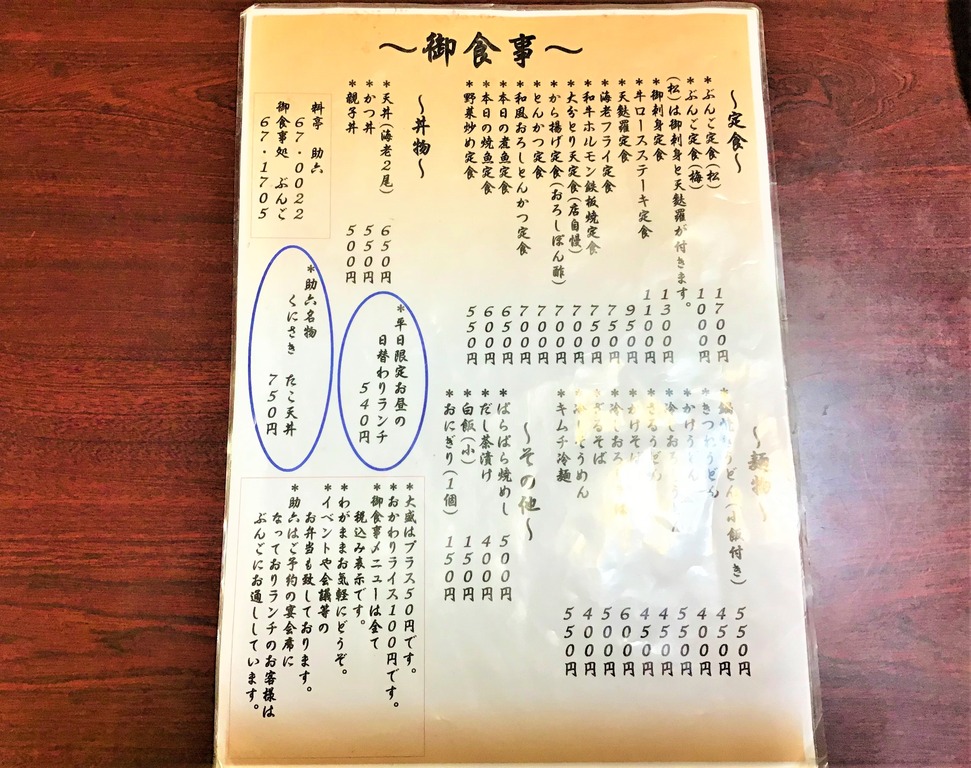 ～御食事～
～定食～
＊ぶんご定食(松)　１７００円
＊ぶんご定食(梅)　１０００円
(松)は御刺身と天麩羅が付きます。
＊御刺身定食　１３００円
＊牛ロースステーキ定食　１１００円
＊天麩羅定食　９５０円
＊海老フライ定食　７５０円
＊和牛ホルモン鉄板焼定食　７５０円
＊大分とり天定食(店自慢)　７００円
＊から揚げ定食(おろしぽん酢)　７００円
＊とんかつ定食　７００円
＊和風おろしとんかつ定食　７００円
＊本日の煮魚定食　６５０円
＊本日の焼魚定食　６００円
＊野菜炒め定食　５５０円
～丼物～
＊天丼(海老２尾)　６５０円
＊かつ丼　５５０円
＊親子丼　５００円
料亭　助六
６７・００２２
御食事処　ぶんご
６７・１７０５
＊平日限定お昼の
日替わりランチ
５４０円
＊助六名物
くにさき　たこ天丼
７５０円
～麺物～
うどん(小飯付き)　５５０円
＊きつねうどん　４５０円
＊かけうどん　４００円
５５０円
４５０円
＊かけそば　４５０円
６００円
＊ざるそば　５００円
そうめん　４００円
＊キムチ冷麺　５５０円
～その他～
＊ぱらぱら焼めし　５００円
＊だし茶漬け　４００円
＊白飯(小)　１５０円
＊おにぎり(１個)　１５０円
＊大盛はプラス５０円です。
＊おかわりライス１００円です。
＊御食事メニューは全て
税込み表示です。
＊わがままお気軽にどうぞ。
＊イベントや会議等の
お弁当も致しております。
＊助六はご予約の宴会席に
なっておりランチのお客様は
ぶんごにお通ししています。